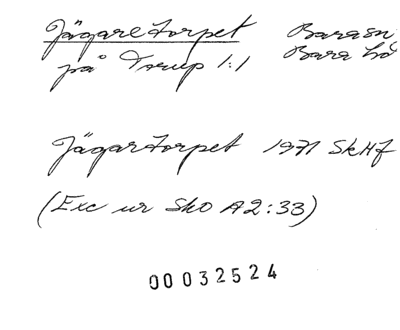 Jägaretorpet Bara sn
på Torup 1:1 Bara hd
Jägartorpet 1971 SkHf
(Exc ur SkO A2:33)
00032524